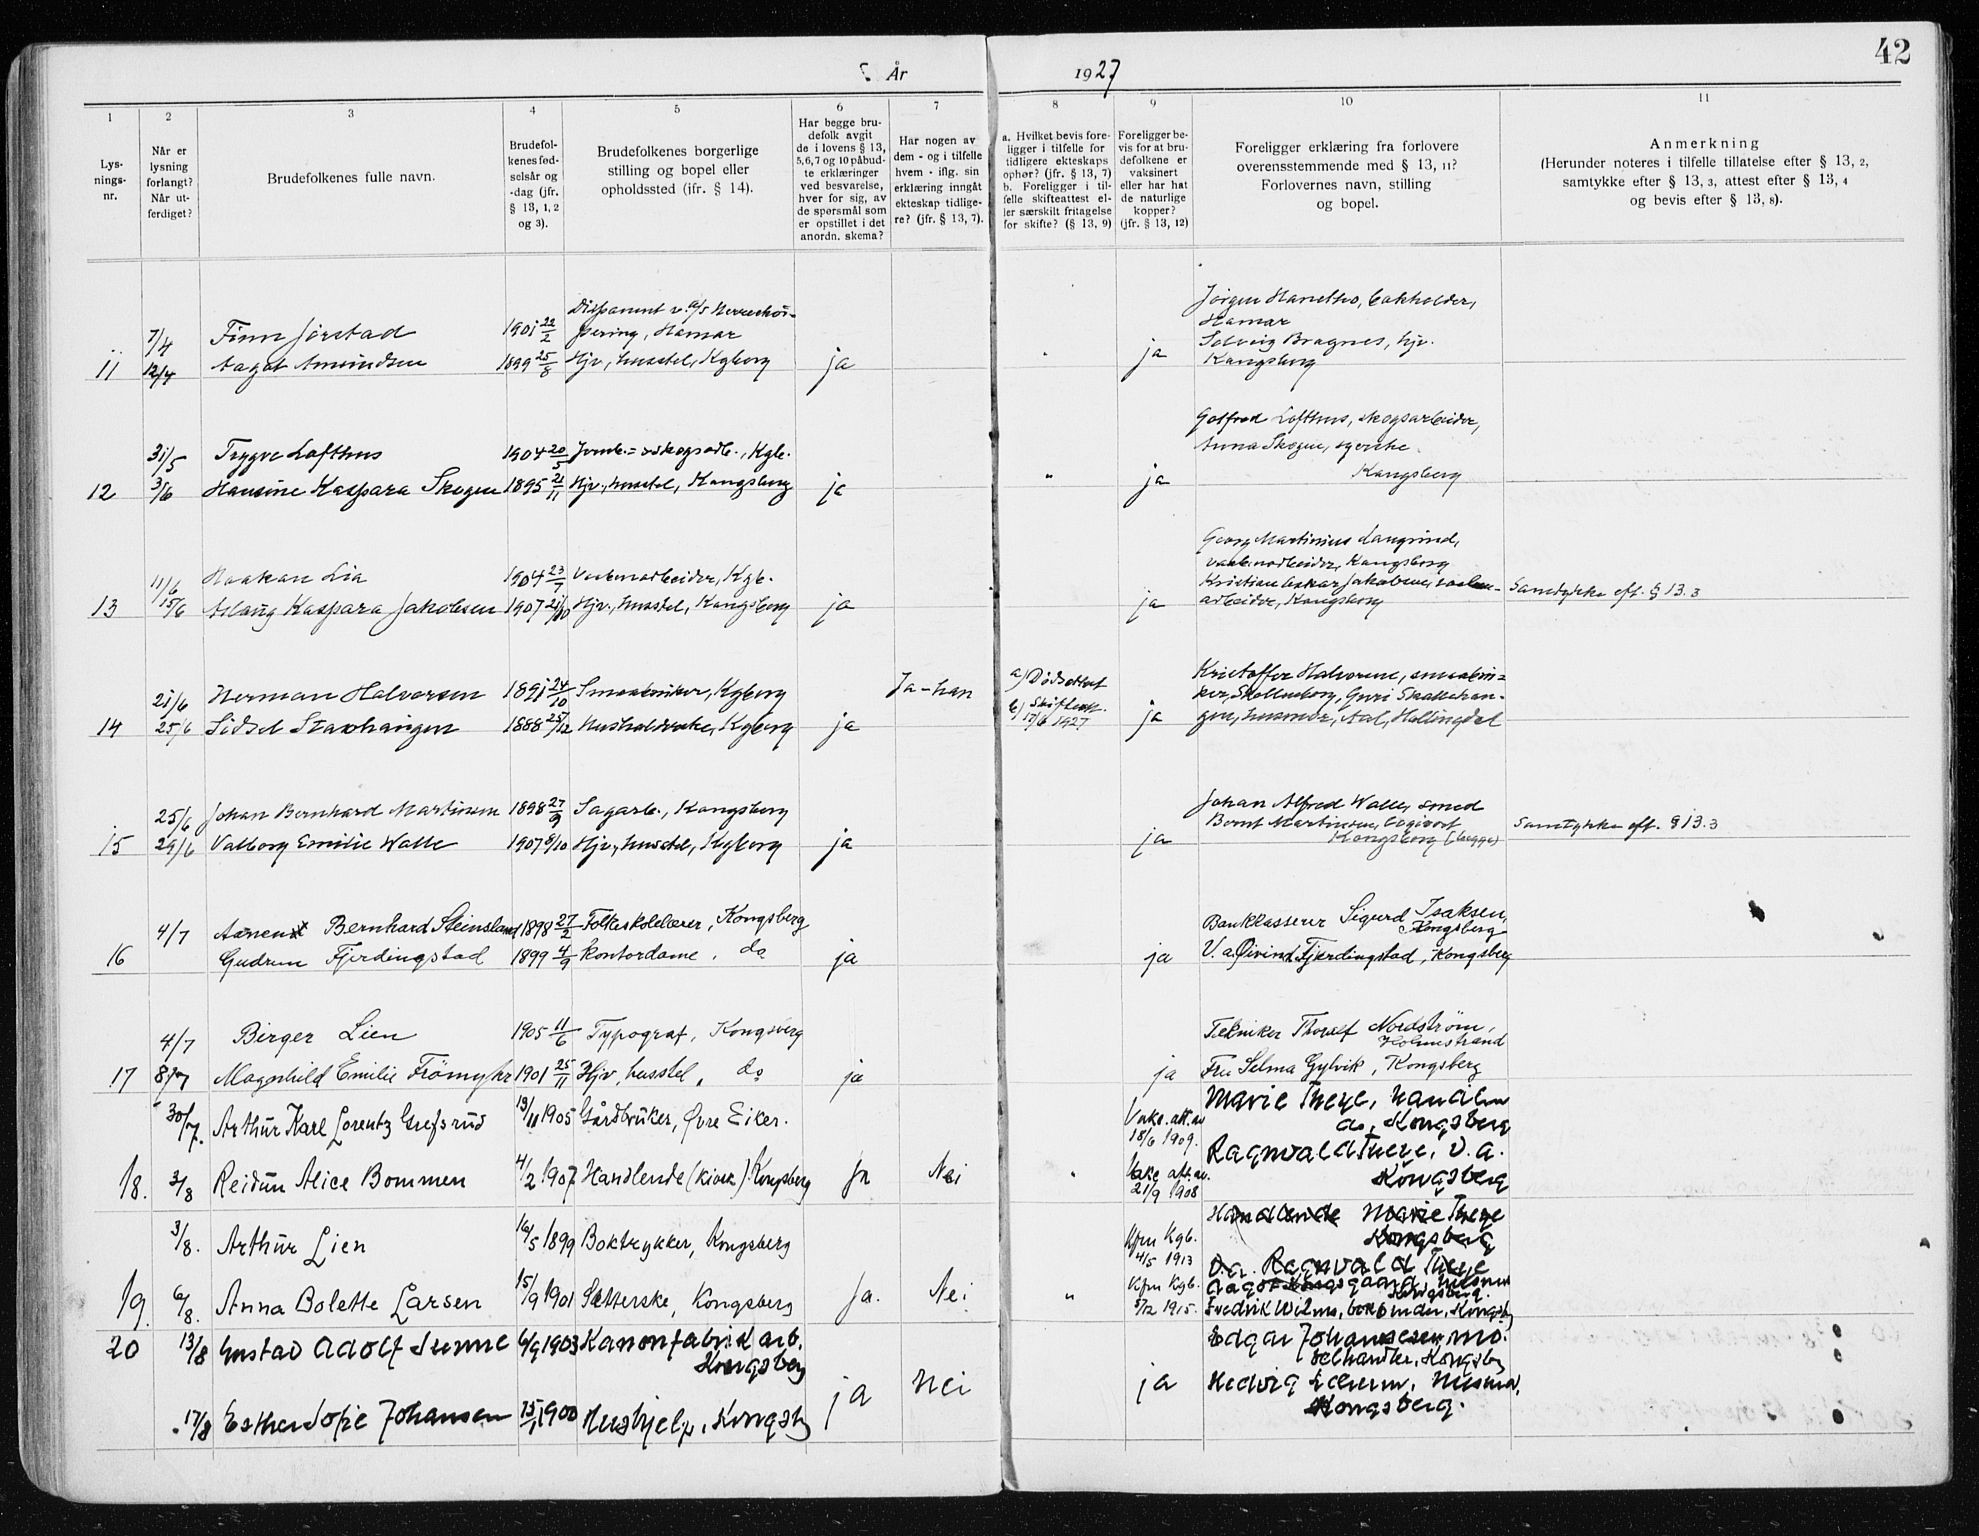 42
År 1927
1 2 3 4 5 6 7 8 9 10 11
Lys-
nings-
nr.
Når er
lysning
forlangt?
Når ut-
ferdiget?
Brudefolkenes fulle navn.
Brudefol-
kenes fød-
selsår og
-dag (jfr.
§ 13, 1, 2
og 3).
Brudefolkenes borgerlige
stilling og bopel eller
opholdssted (ifr. § 14).
Har begge bru-
defolk avgit
de i lovens § 13,
5, 6, 7 og 10 påbud-
te erklæringer
ved besvarelse,
hver for sig, av
de spørsmål som
er opstillet i det
anordn. skema?
Har nogen av
dem - og i tilfelle
hvem - iflg. sin
erklæring inngått
ekteskap tidlige-
re? (jfr. § 13, 7).
a. Hvilket bevis fore-
ligger i tilfelle for
tidligere ekteskaps
ophør? (jfr. § 13, 7)
b. Foreligger i til-
felle skifteattest el-
ler særskilt fritagelse
for skifte? (§ 13, 9)
Foreligger be-
vis for at bru-
defolkene er
vaksinert
eller har hat
de naturlige
kopper?
(jfr. § 13, 12)
Foreligger erklæring fra forlovere
overensstemmende med § 13, 11?
Forlovernes navn, stilling
og bopel.
Anmerkning
(Herunder noteres i tilfelle tillatelse efter § 13, 2,
samtykke efter § 13, 3, attest efter § 13, 4
og bevis efter § 13, 8).
7/4 Finn Jørstad 1901 22/2 Disponent v. A/S Herreekvi-
pering, Hamar
11 12/4 Aagot Amundsen 1899 25/8 Hjv., husstel, Kgberg ja ja
Hamar
Solveig Bragnes, hjv.
Kongsberg
31/5 Trygve Lofthus 1904 20/5 Jernb.- & skogsarb., Kgb.
12 3/6 Hansine Kaspara Skogen 1895 21/11 Hjv., husstel, Kongsberg ja " ja
Gotfred Lofthus, skogsarbeider,
Anna Skogen, syerske
Kongsberg
11/6 Haakan Lia 1904 23/7 Vaabenarbeider, Kgb.
13 15/6 Aslaug Kaspara Jakobsen 1907 21/10 Hjv., husstel, Kongsberg ja ja
Georg Martinius Langrind,
vaabenarbeider, Kongsberg
Kristian Oskar Jakobsen, vaaben-
arbeider, Kongsberg
Samtykke eft. § 13.3
21/6 Herman Halvorsen 1891 24/10 Smaabruker, Kgberg Ja - han
14 25/6 Sidsel 1888 25/12 Kgberg ja
a) Dødsattest
b) Skifteatt.
17/6 1927
ja
Kristoffer Halvorsen, smaabru-
ker, Skollenborg, Guri
husmor, Aal, Hallingdal
25/6 Johan Bernhard Martinsen 1898 27/9 Sagarb., Kongsberg
15 29/6 Valborg Emilie Walle 1907 6/10 Hjv., husstel, Kgberg ja ja
Johan Alfred Walle, smed
Bernt Martinsen,
Kongsberg (begge)
Samtykke eft. § 13.3
4/7 Bernhard Steinsland 1898 27/2 Folkeskolelærer, Kongsberg
16 Gudrun Fjerdingstad 1899 4/9 Kontordame, do ja ja
Bankkasserer Sigurd Isaksen,
Kongsberg
V. a. Øivind Fjerdingstad, Kongsberg
4/7 Birger Lien 1905 11/6 Typograf, Kongsberg
17 8/7 Magnhild Emilie Frömyhr 1901 25/11 Hjv, husstel, do ja ja
Tekniker Thoralf Nordstrøm,
Holmestrand
Fru Selma Gylvik, Kongsberg
30/7. Arthur Karl Lorentz Grefsrud 13/11 1905 Gårdbruker, Øvre Eiker.
18. 3/8 Reidun Alice Bommen 4/2 1907 Handlende (kiosk) Kongsberg Ja Nei "
Vaks. att. av
18/6 1909.
Vaks att. av.
21/9 1908
Marie Theye, handlen
de, Kongsberg
Ragnvald Theye, V. a.
Kongsberg
3/8. Arthur Lien 16/5 1899 Boktrykker, Kongsberg
19. 6/8. Anna Bolette Larsen 15/9 1901 Sætterske, Kongsberg Ja. Nei "
Kfm Kgb.
4/5 1913
Kfm Kgb.
5/12 1915.
Handlende Marie Theye
Kongsberg
V.a. Ragnvald Theye
Kongsberg.
Fredrik Wilms, bokbinder, Kongsbg
20 13/8 Gustav Adolf Sunne 6/9 1903 Kanonfabrik arb.
Kongsberg
17/8 Esther Sofie Johansen 15/1 1900 Hushjelp, Kongsb ja Nei ja
Edgar Johannesen, mø-
belhandler, Kongsbg
Hedvig Husmor,
Kongsberg.